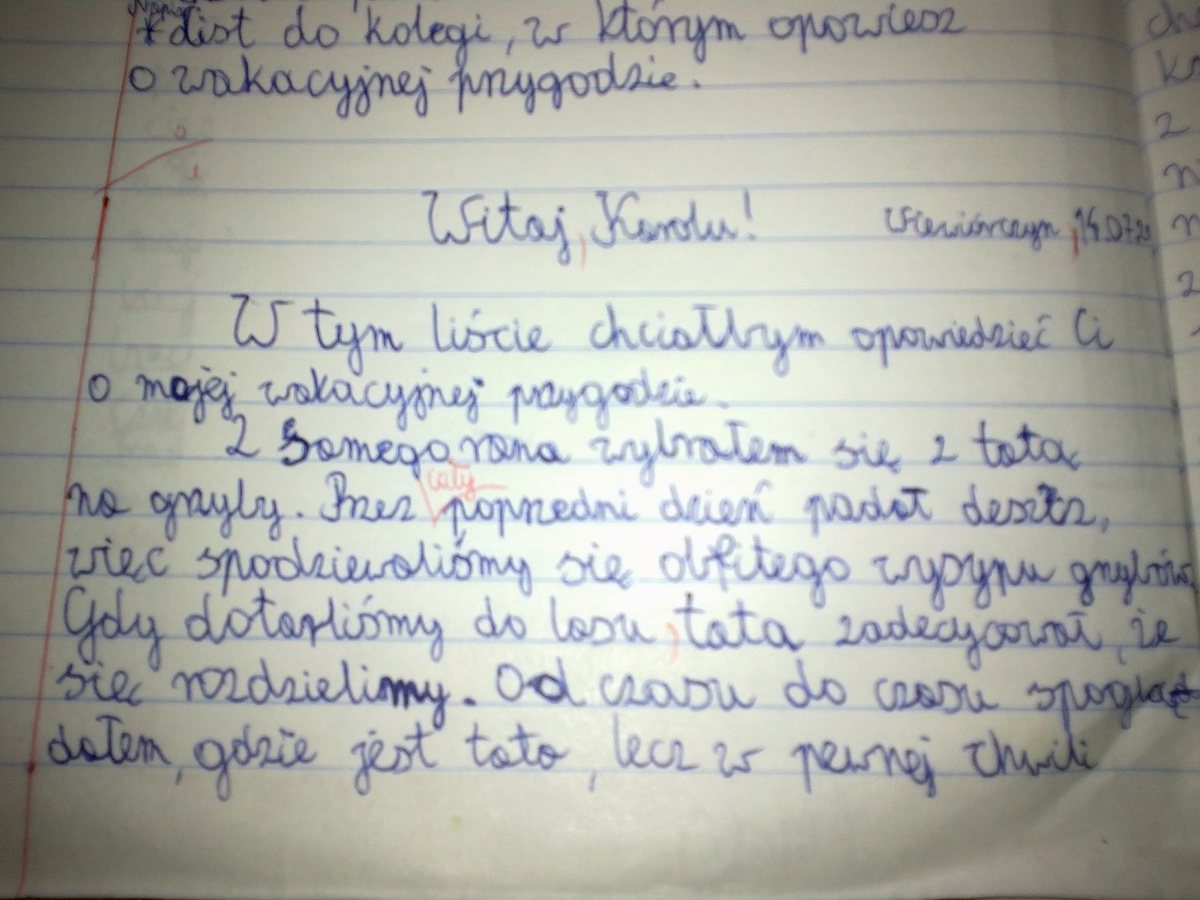 Napisz
* list do kolegi, w którym opowiesz
o wakacyjnej przygodzie.
Witaj, Karolu! Wiewiórczyn, 14.07.20
W tym liście chciałbym opowiedzieć Ci
o mojej wakacyjnej przygodzie.
Z samego rana wybrałem się z tatą
cały
na grzyby. Przez poprzedni dzień padał deszcz,
więc spodziewaliśmy się obfitego wysypu grzybów.
Gdy dotarliśmy do lasu, tata zadecydował, że
się rozdzielimy. Od czasu do czasu spoglą
dałem, gdzie jest tata, lecz w pewnej chwili